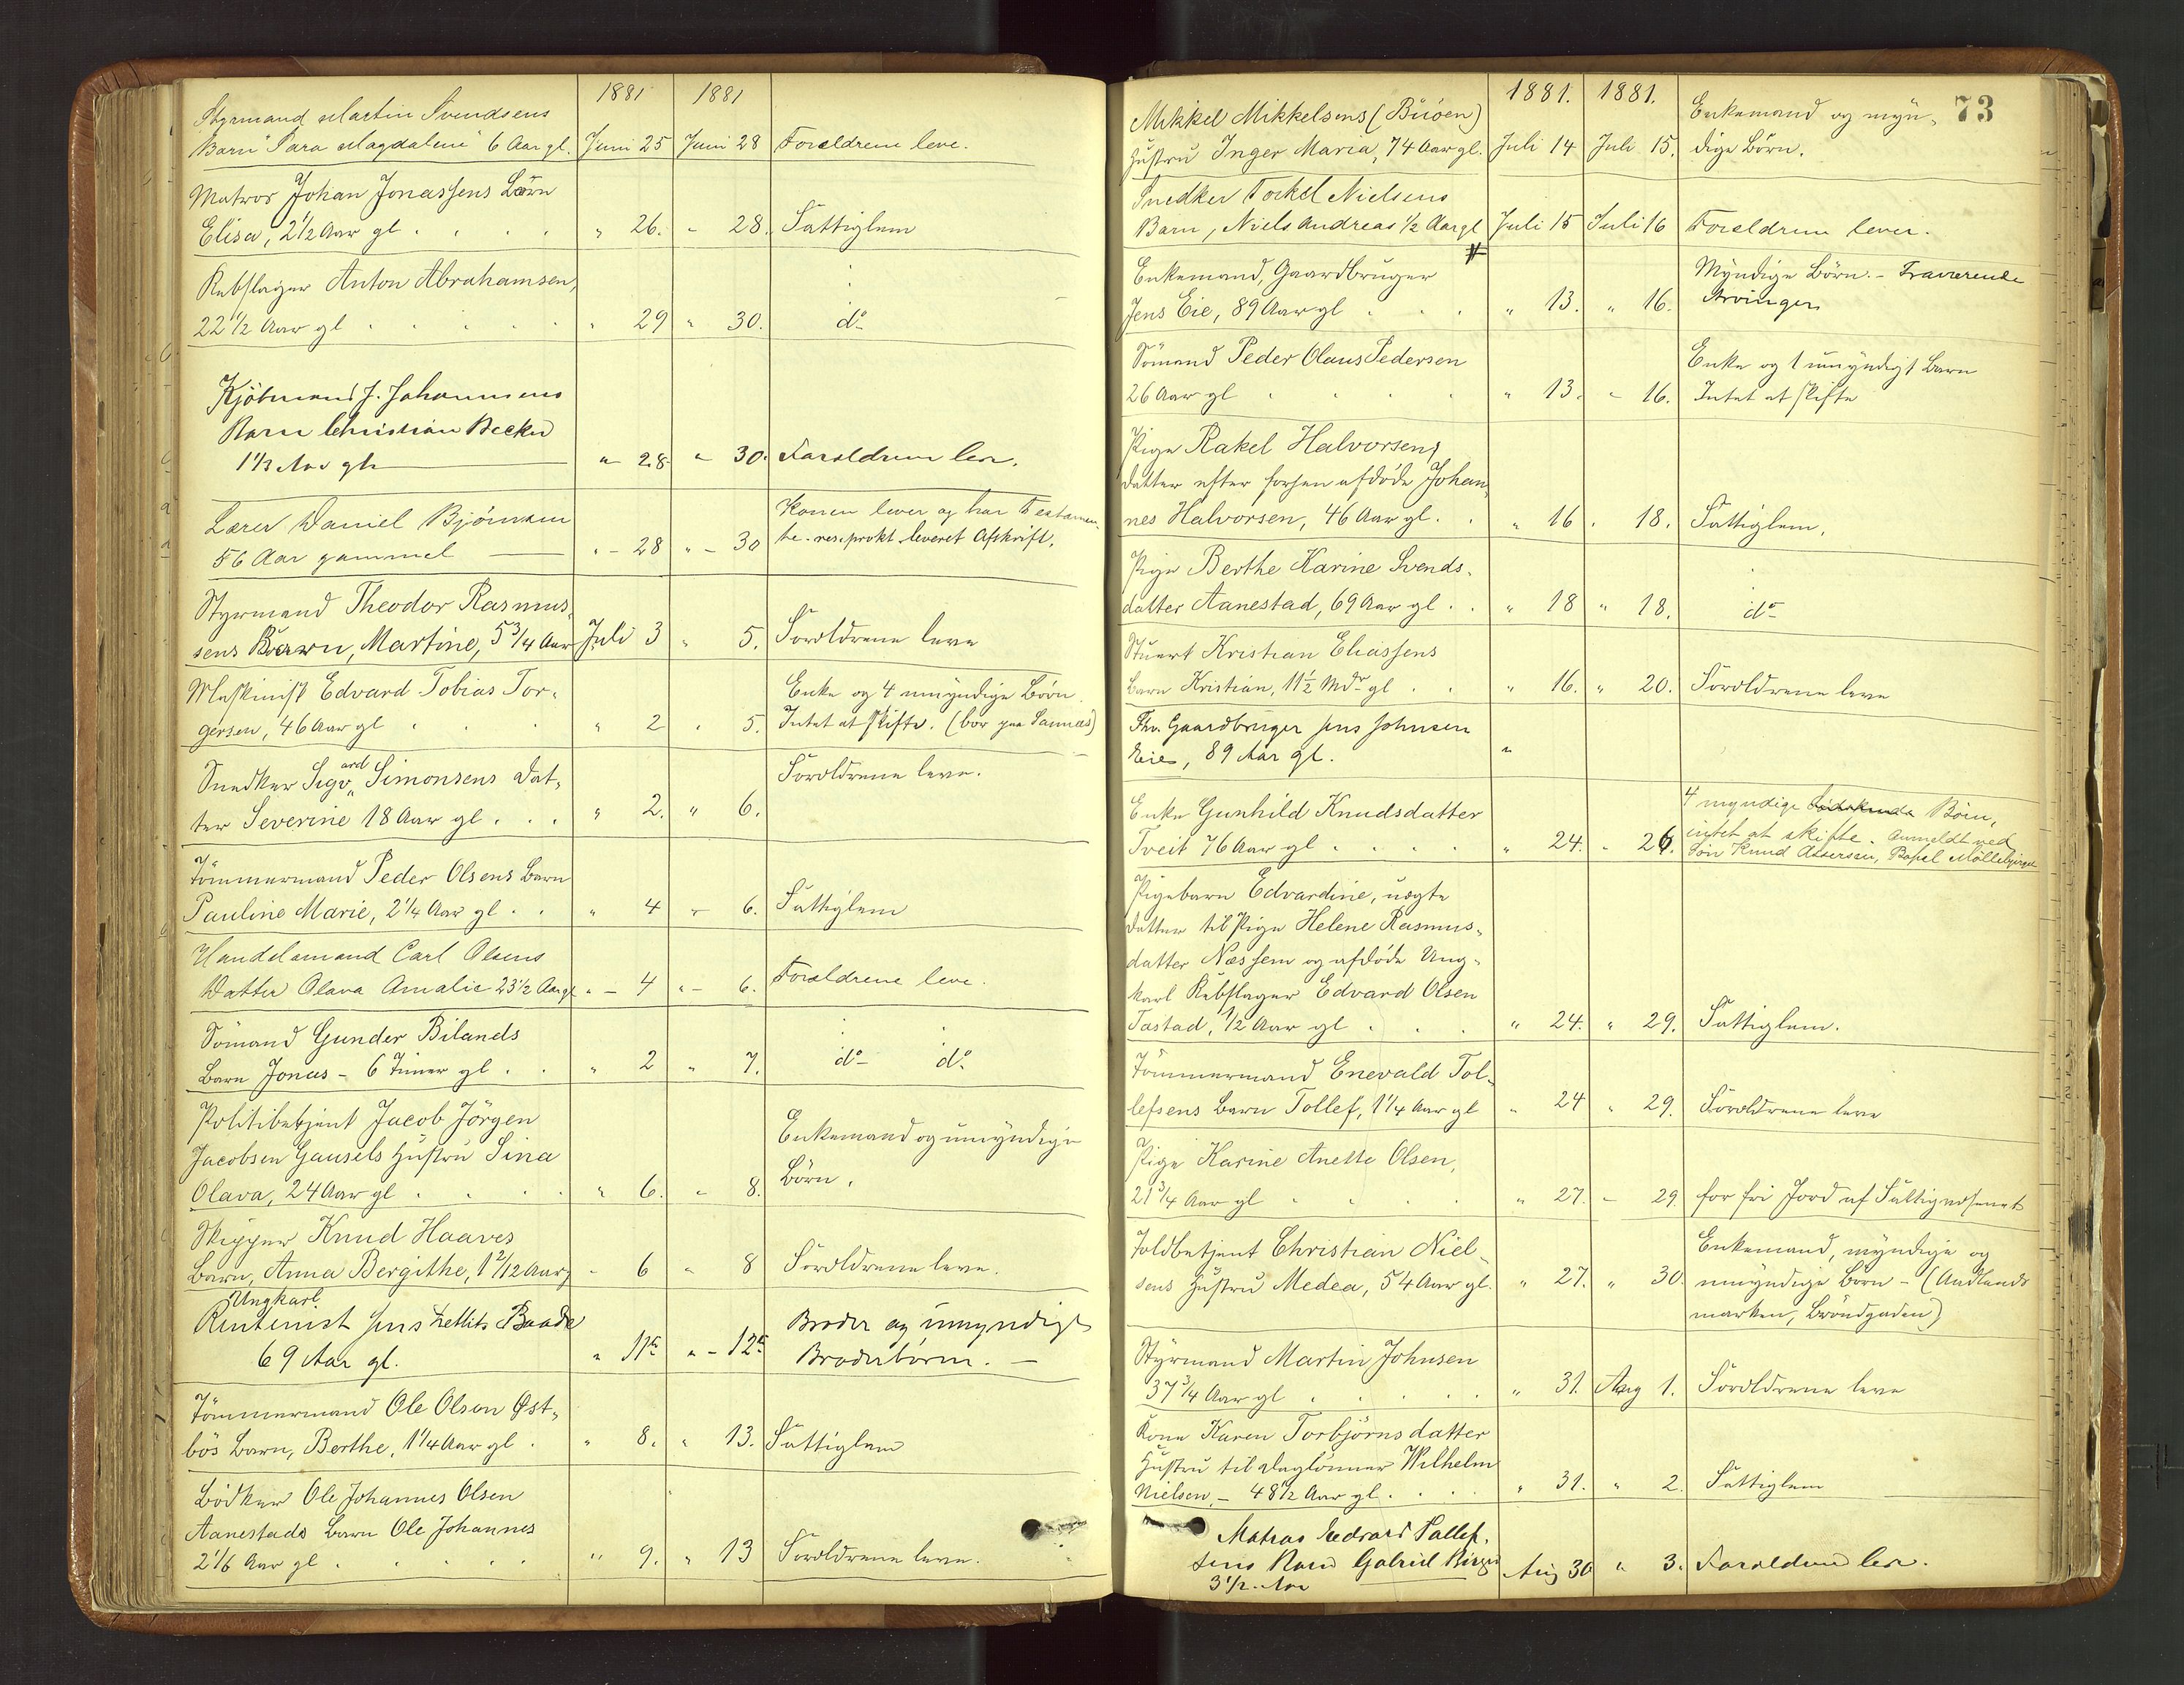 1881 1881
Styrmand Martin Svendsens
Barn Sara Magdalene 6 Aar gl. Juni 25 Juni 28 Forældrene leve.
Matros Johan Jonassens Barn
Elisa, 2 1/2 Aar gl . . . . " 26. " 28. Fattiglem
Rebslager Anton Abrahamsen,
22 1/2 Aar gl . . . . . " 29 " 30. do
Kjöbmand J. Johannesens
Barn Christian Becker
1 1/3 Aar gl. " 28 " 30. Forældrene lever.
Lærer Daniel Björnsen
56 Aar gammel " - 28 " - 30
Konen lever og har Testamen-
te. leveret Afskrift.
Styrmand Theodor Rasmus-
sens Barn, Martine, 5 3/4 Aar Juli 3 " 5. Forældrene leve
Maskinist Edvard Tobias Tor-
gersen, 46 Aar gl . . . " 2 " 5.
Enke og 4 umyndige Börn.
Intet at skifte. (bor paa Sannæs)
Snedker Sigvard Simonsens Dat-
ter Severine 18 Aar gl . . . " 2. " 6. Forældrene leve.
Tömmermand Peder Olsens Barn
Pauline Marie, 2 1/4 Aar gl . . " 4 " 6. Fattiglem
Handelsmand Carl Olsens
Datter Olava Amalie 23 1/2 Aar gl " - 4 " - 6. Forældrene leve.
Sömand Gunder Bilands
Barn Jonas - 6 Timer gl . . " 2 " 7. do do
Politibetjent Jacob Jörgen
Jacobsen Gausels Hustru Sina
Olava, 24 Aar gl . . . . " 6. " 8.
Enkemand og umyndige
Börn.
Skipper Knud Haaves
Barn, Anna Bergithe, 1 2/12 Aar gl " 6 " 8 Forældrene leve.
Ungkarl.
Rentenist Jens Zetlitz Baade
69 Aar gl. " 11te " - 12te
Broder og umyndige
Broderbörn. -
Tömmermand Ole Olsen Øst-
bös Barn, Berthe, 1 1/4 Aar gl . " 8. " 13. Fattiglem
Bödker Ole Johannes Olsen
Aanestads Barn Ole Johannes
2 1/6 Aar gl . . . . . " 9. " 13 Forældrene leve.
1881. 1881. 73
Mikkel Mikkelsens (Buöen)
Hustru Inger Maria, 74 Aar gl. Juli 14 Juli 15.
Enkemand og myn-
dige Börn.
Snedker Torkel Nielsens
Barn, Niels Andreas 1/2 Aar gl Juli 15 Juli 16 Forældrene lever.
Enkemand, Gaardbruger #
Jens Eie, 89 Aar gl . . . " 13. " 16.
Myndige Börn. - Fraværende
Arvinger
Sömand Peder Olaus Pedersen
26 Aar gl . . . . " 13. " 16.
Enke og 1 umyndigt Barn
Intet at skifte
Pige Rakel Halvorsen,
datter efter forhen afdöde Johan-
nes Halvorsen, 46 Aar gl . . " 16 " 18. Fattiglem.
Pige Berthe Karine Svends-
datter Aanestad, 69 Aar gl . . " 18 " 18. do
Stuert Kristian Eliassens
Barn Kristian, 11 1/2 Mdr gl . . " 16. " 20. Forældrene leve
Fhv. Gaardbruger Jens Johnsen
Eie, 89 Aar gl. "
Enke Gunhild Knudsdatter
Tveit 76 Aar gl . . . . " 24. " 26.
4 myndige Börn,
intet at skifte. Anmeldt ved
Sön Knud
Pigebarn Edvardine, uægte
datter til Pige Helene Rasmus-
datter Næssem og afdöde Ung-
karl Rebslager Edvard Olsen
Tastad, 1/2 Aar gl . . . " 24. " 29. Fattiglem.
Tömmermand Enevald Tol-
lefsens Barn Tollef, 1 1/4 Aar gl " 24 " 29. Forældrene leve
Pige Karine Anette Olsen,
21 3/4 Aar gl . . . . " 27. " 29. for fri Jord af Fattigvæsenet
Toldbetjent Christian Niel-
sens Hustru Medea, 54 Aar gl. " 27. " 30.
Enkemand, myndige og
umyndige Börn - (Aadlands
marken, Bröndgaden)
Styrmand Martin Johnsen
37 3/4 Aar gl . . . . . " 31. Aug 1. Forældrene leve
Kone Karen Torbjörnsdatter
Hustru til Daglönner Wilhelm
Nielsen, - 48 1/2 Aar gl . . . . " 31. " 2. Fattiglem
Matros Edvard Tollef-
sens Barn Gabriel Birger
3 1/2 Aar Aug 30 " 3. Forældrene lever.